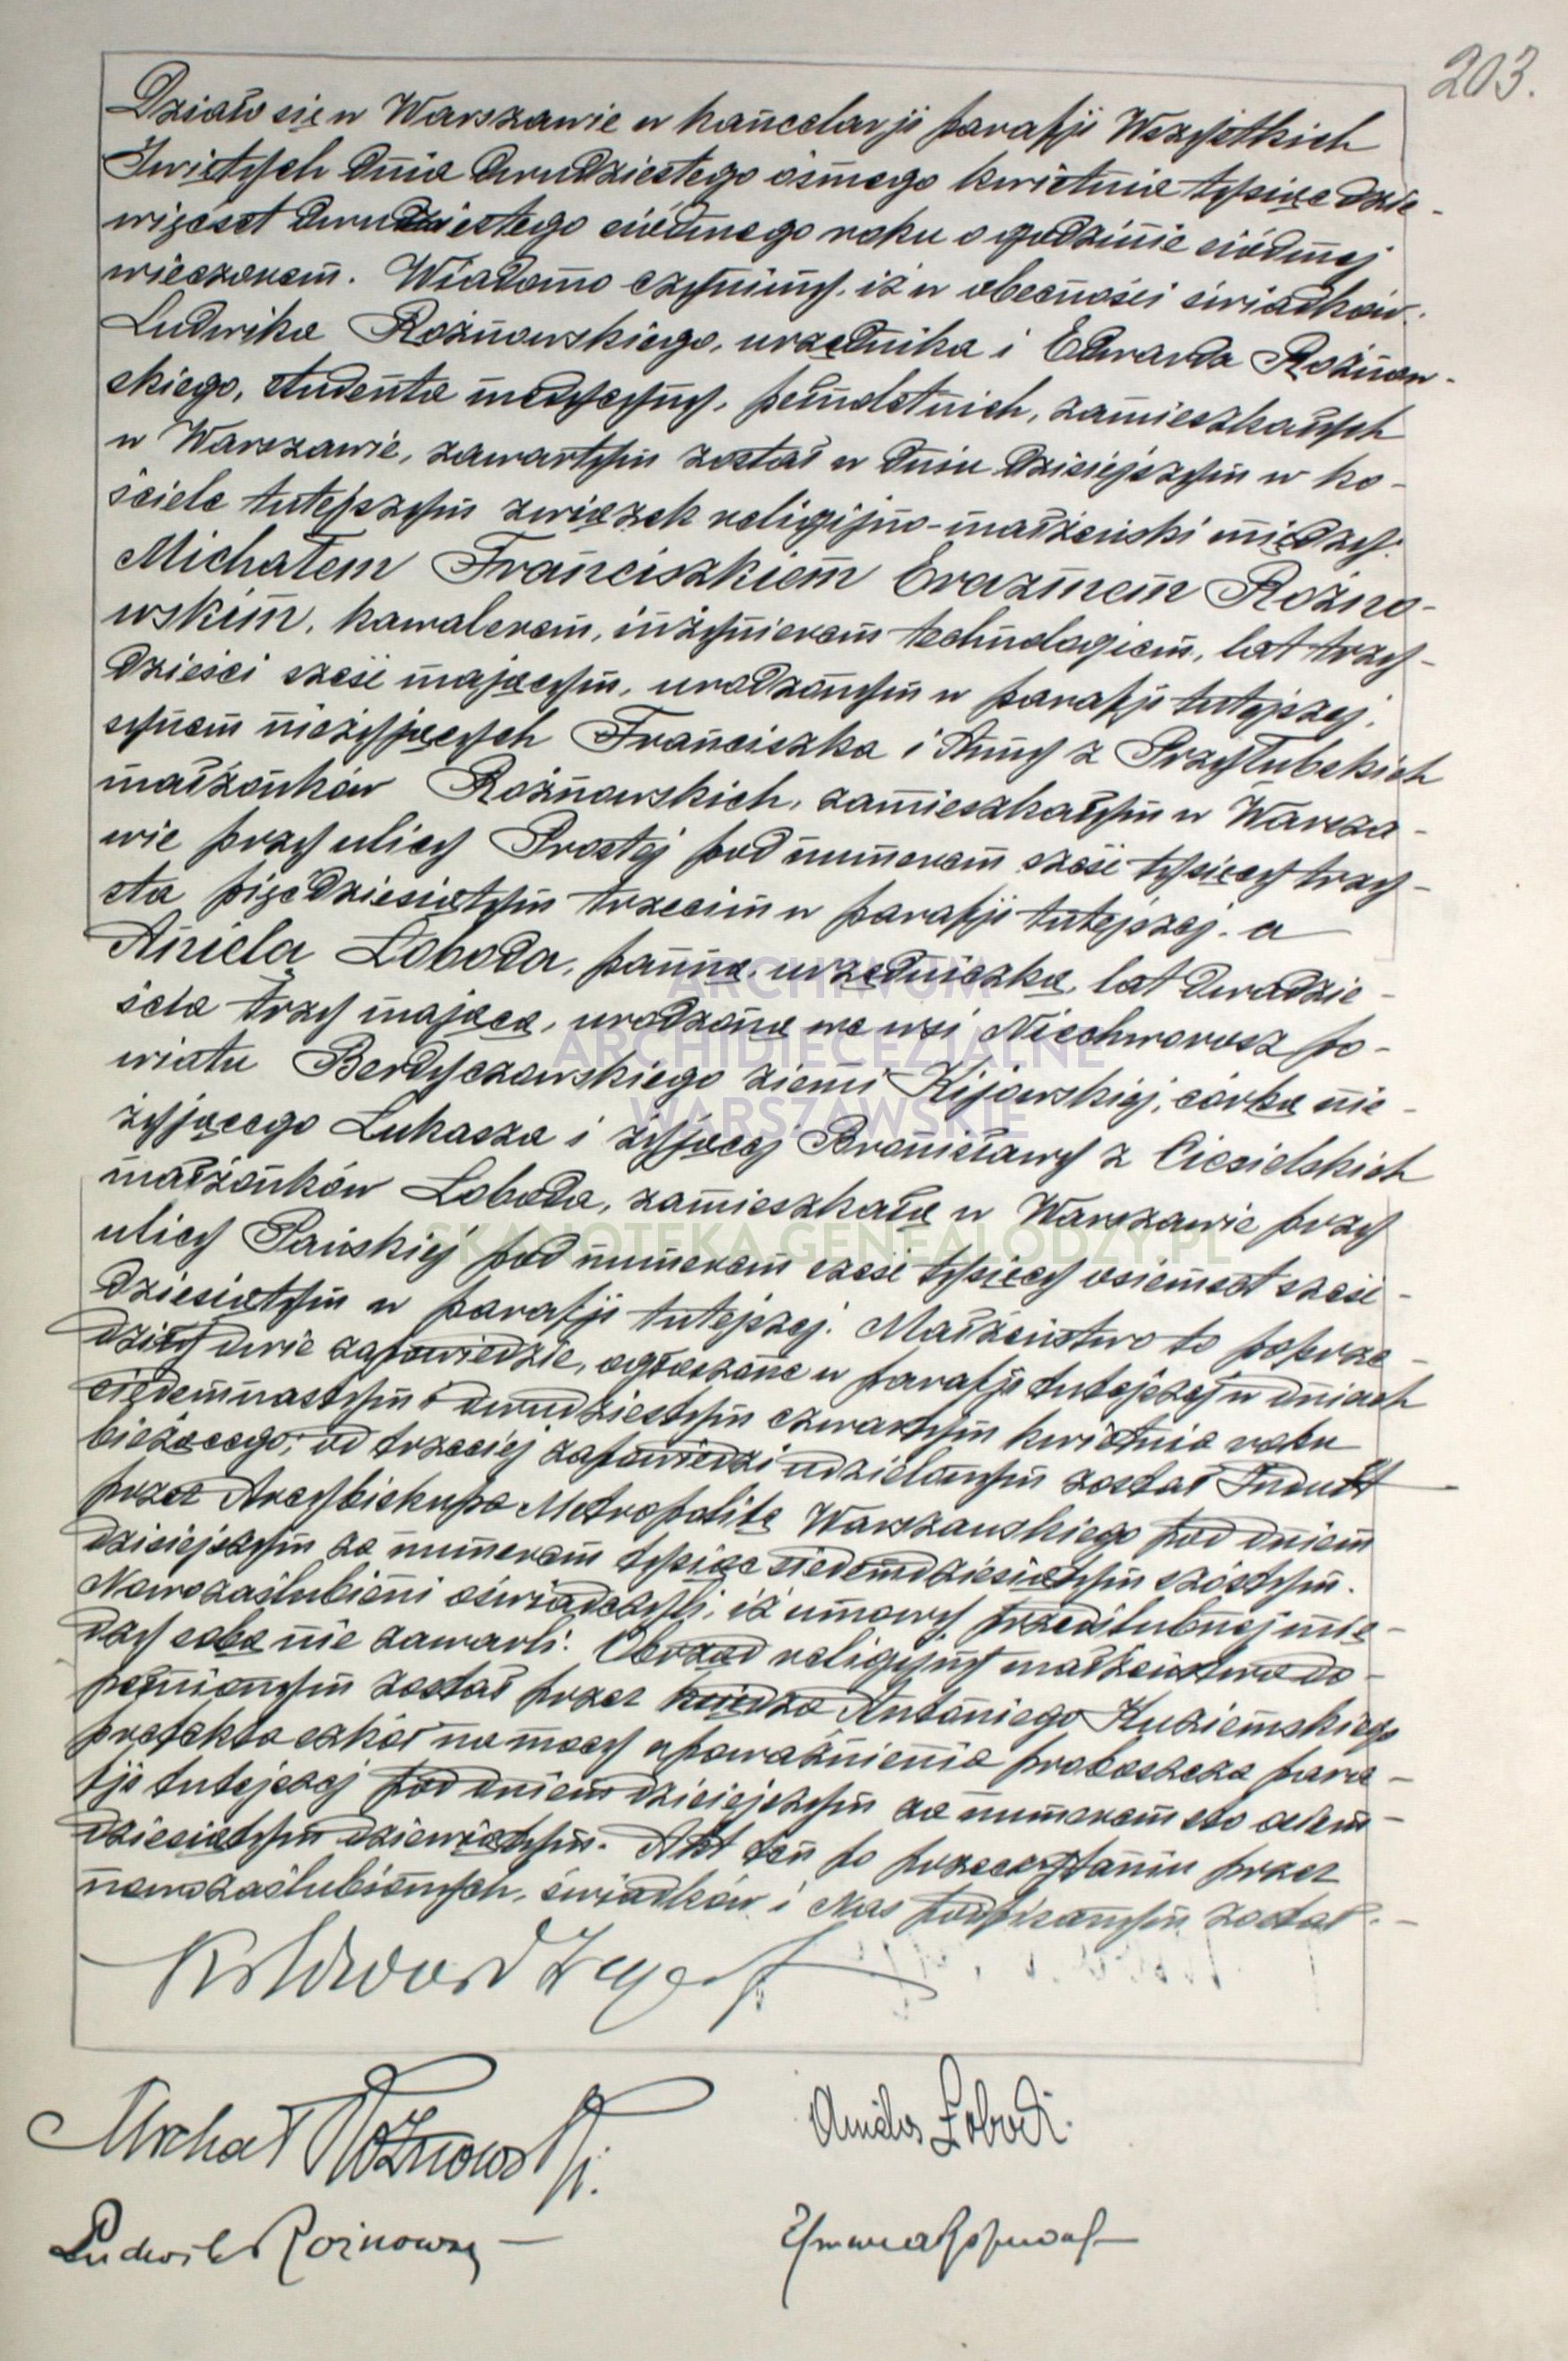 203.
Działo się w Warszawie w kancelarji parafji Wszystkich
Świętych dnia dwudziestego ósmego kwietnia tysiąc dzie-
więćset dwudziestego siódmego roku o godzinie siódmej
wieczorem. Wiadomo czynimy, iż w obecności świadków:
Ludwika Rożnowskiego, urzędnika i Edwarda Rożnow-
skiego, studenta medycyny, pełnoletnich, zamieszkałych
w Warszawie, zawartym został w dniu dzisiejszym w ko-
ściele tutejszym związek religijno-małżeński między:
Michałem Franciszkiem Erazmem Rożno-
wskim, kawalerem, inżynierem technologiem, lat trzy-
dzieści sześć mającym, urodzonym w parafji tutejszej,
synem nieżyjących Franciszka i Anny z Przyłubskich
małżonków Rożnowskich, zamieszkałym w Warsza-
wie przy ulicy Prostej pod numerem sześć tysięcy trzy-
sta pięćdziesiątym trzecim w parafji tutejszej, a
Anielą Łoboda, panną, urzędniczką, lat dwadzie-
ścia trzy mającą, urodzoną we wsi Niechworosz po-
wiatu Berdyczowskiego ziemi Kijowskiej, córką nie-
żyjącego Łukasza i żyjącej Bronisławy z Ciesielskich
małżonków Łoboda, zamieszkałą w Warszawie przy
ulicy Pańskiej pod numerem sześć tysięcy osiemset sześć-
dziesiątym w parafji tutejszej. Małżeństwo to poprze-
dziły dwie zapowiedzie, ogłoszone w parafji tutejszej w dniach
siedemnastym i dwudziestym czwartym kwietnia roku
bieżącego; od trzeciej zapowiedzi udzielonym został Indult
przez Arcybiskupa Metropolitę Warszawskiego pod dniem
dzisiejszym za numerem tysiąc siedemdziesiątym szóstym.
Nowozaślubieni oświadczyli, iż umowy przedślubnej mię-
dzy sobą nie zawarli. Obrząd religijny małżeństwa do-
pełnionym został przez księdza Antoniego Kuziemskiego
prefekta szkół na mocy upoważnienia proboszcza para-
fji tutejszej pod dniem dzisiejszym za numerem sto osiem-
dziesiątym dziewiątym. Akt ten po przeczytaniu przez
nowozaślubionych, świadków i Nas podpisanym został.
Michał Rożnowski.
Aniela Łoboda.
Ludwik Rożnowski
ARCHIWUM
ARCHIDIECEZJALNE
WARSZAWSKIE
SKANOTEKA.GENEALODZY.PL